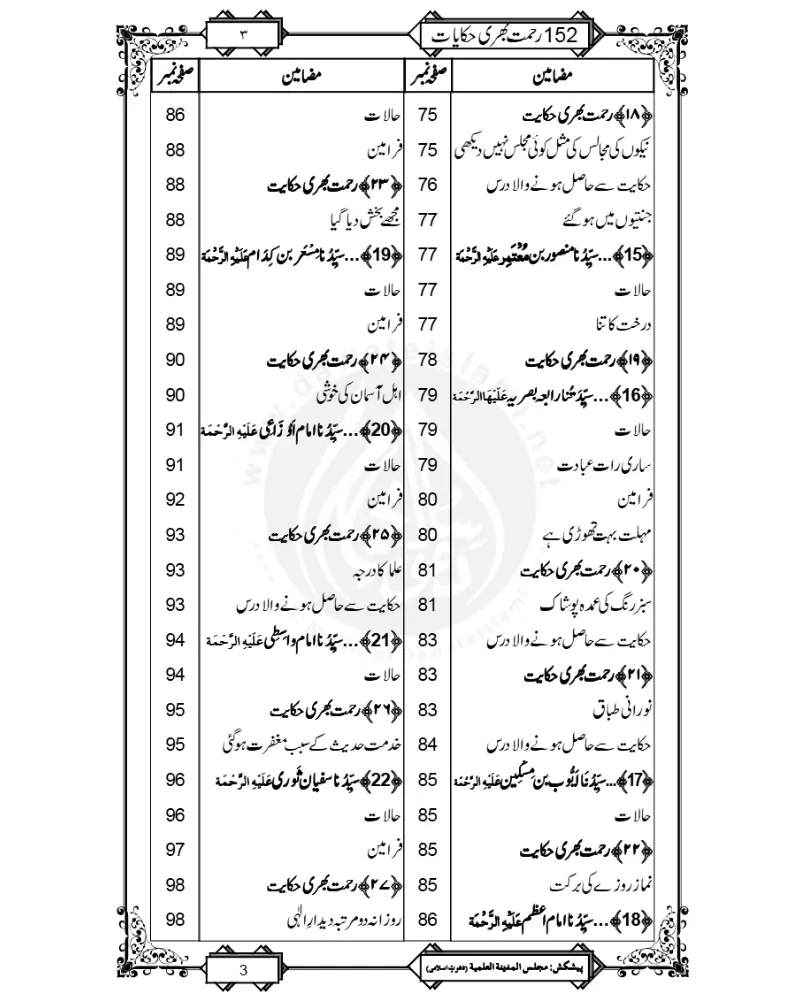 152 رحمت بھری حکایات
۳
مضامین صفحہ نمبر
﴿۱۸﴾ رحمت بھری حکایت 75
نیکوں کی مجالس کی مثل کوئی مجلس نہیں دیکھی 75
حکایت سے حاصل ہونے والا درس 76
جنتیوں میں ہوگئے 77
﴿15﴾...سیِّدُنا منصور بن مُعْتَمِر عَلَیْہِ الرَّحْمَۃ 77
حالات 77
درخت کا تنا 77
﴿۱۹﴾ رحمت بھری حکایت 78
﴿16﴾...سیِّدَتُنا رابعہ بصریہ عَلَیْہَا الرَّحْمَۃ 79
حالات 79
ساری رات عبادت 79
فرامین 80
مہلت بہت تھوڑی ہے 80
﴿۲۰﴾ رحمت بھری حکایت 81
سبز رنگ کی عمدہ پوشاک 81
حکایت سے حاصل ہونے والا درس 83
﴿۲۱﴾ رحمت بھری حکایت 83
نورانی طباق 83
حکایت سے حاصل ہونے والا درس 84
﴿17﴾...سیِّدُنَا اَیُّوب بن مِسْکِین عَلَیْہِ الرَّحْمَۃ 85
حالات 85
﴿۲۲﴾ رحمت بھری حکایت 85
نماز روزے کی برکت 85
﴿18﴾...سیِّدُنا امام اعظم عَلَیْہِ الرَّحْمَۃ 86
مضامین صفحہ نمبر
حالات 86
فرامین 88
﴿۲۳﴾ رحمت بھری حکایت 88
مجھے بخش دیا گیا 88
﴿19﴾...سیِّدُنا مِسْعَر بن کِدَام عَلَیْہِ الرَّحْمَۃ 89
حالات 89
فرامین 89
﴿۲۴﴾ رحمت بھری حکایت 90
اہل آسمان کی خوشی 90
﴿20﴾...سیِّدُنا امام اَوْزَاعِی عَلَیْہِ الرَّحْمَۃ 91
حالات 91
فرامین 92
﴿۲۵﴾ رحمت بھری حکایت 93
علما کا درجہ 93
حکایت سے حاصل ہونے والا درس 93
﴿21﴾...سیِّدُنا امام واسِطی عَلَیْہِ الرَّحْمَۃ 94
حالات 94
﴿۲۶﴾ رحمت بھری حکایت 95
خدمت حدیث کے سبب مغفرت ہوگئی 95
﴿22﴾ سیِّدُنا سفیان ثَوری عَلَیْہِ الرَّحْمَۃ 96
حالات 96
فرامین 97
﴿۲۷﴾ رحمت بھری حکایت 98
روزانہ دو مرتبہ دیدارِ الٰہی 98
پیشکش: مجلس المدینۃ العلمیۃ (دعوتِ اسلامی)
3